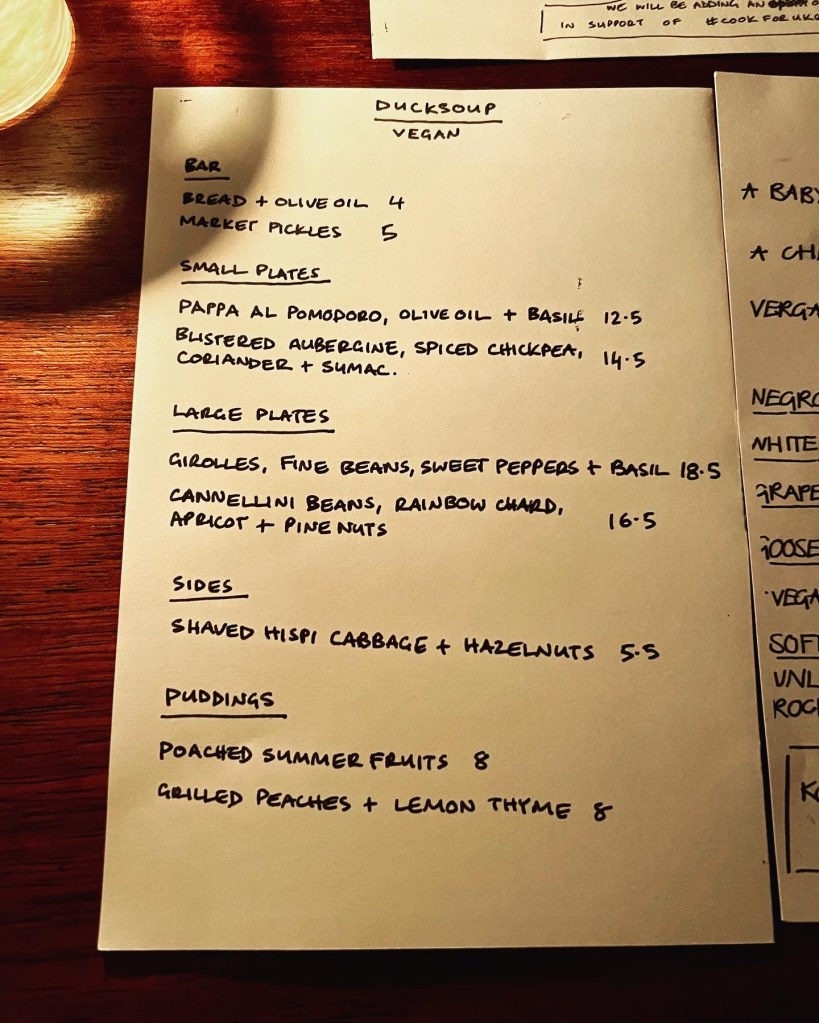 WE WILL BE ADDING AN
IN SUPPORT OF #COOKFORUKR
DUCKSOUP
VEGAN
BAR
BREAD + OLIVE OIL 4
MARKET PICKLES 5
SMALL PLATES
PAPPA AL POMODORO, OLIVE OIL + BASIL 12.5
BLISTERED AUBERGINE, SPICED CHICKPEA,
CORIANDER + SUMAC. 14.5
LARGE PLATES
GIROLLES, FINE BEANS, SWEET PEPPERS + BASIL 18.5
CANNELLINI BEANS, RAINBOW CHARD,
APRICOT + PINE NUTS 16.5
SIDES
SHAVED HISPI CABBAGE + HAZELNUTS 5.5
PUDDINGS
POACHED SUMMER FRUITS 8
GRILLED PEACHES + LEMON THYME 8
A BABY
A CHA
VERGA
NEGRO
WHITE
GRAPE
GOOSE
VEGA
SOFT
UNL
ROCK